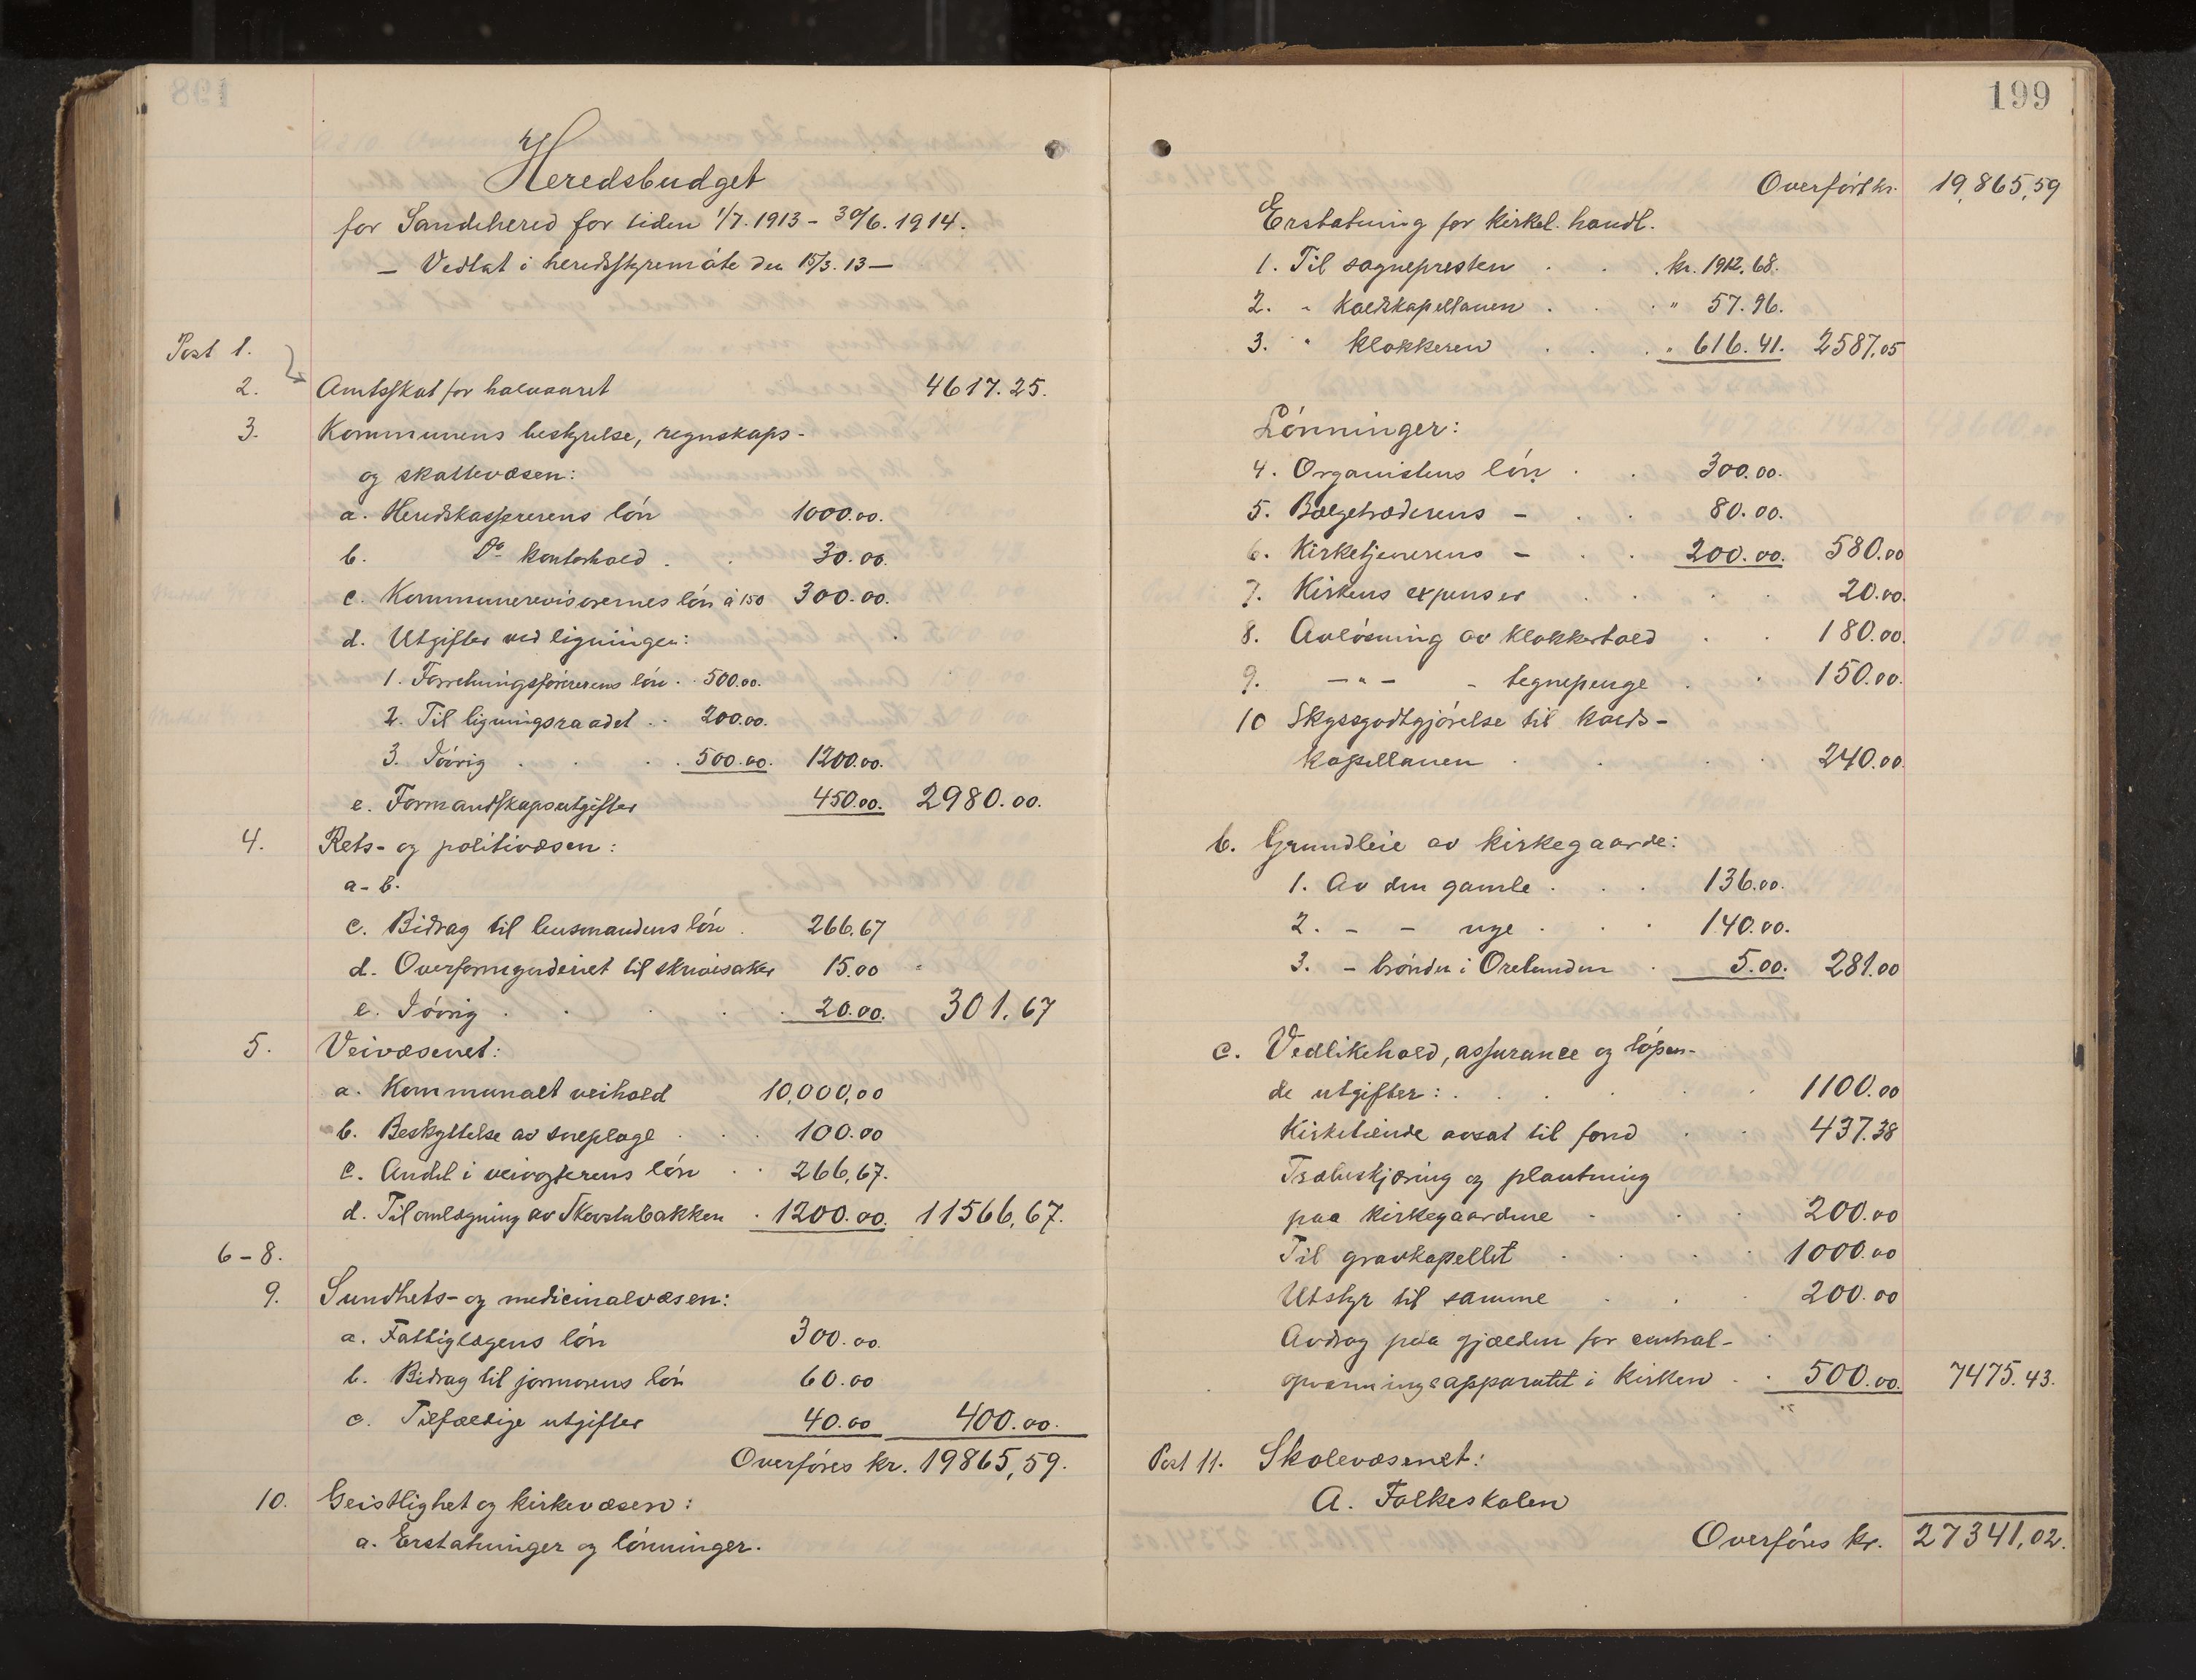 198
Heredsbudget
for Sandehered for tiden 1/7. 1913 - 30/6. 1914.
- Vedtat i heredsstyremöte den 15/3. 13 -
Post 1.
2. Amtsskat for halvaaret 4617.25.
3. Kommunens bestyrelse, regnskaps-
og skattevæsen:
a. Heredskassererens lön 1000.00.
b. Do kontorhold . . 30.00.
c. Kommunerevisorernes lön à 150 300.00.
d. Utgifter ved ligningen:
1. Forretningsförerens lön . . 500.00.
2. Til ligningsraadet . . 200.00.
3. Iövrig . . . . 500.00. 1200.00.
e. Formandskapsutgifter 450.00. 2980.00.
4. Rets- og politivæsen:
a - b.
c. Bidrag til lensmandens lön . 266,67
d. Overformynderiet til skrivesaker 15.00
e. Iövrig . . . . . 20.00. 301,67
5. Veivæsenet:
a. Kommunalt veihold 10,000,00
b. Beskyttelse av sneploge . . . 100.00
c. Andel i veivogterens lön . . 266,67.
d. Til omlægning av Skovstubakken . 1200.00. 11566,67.
6 - 8.
9. Sundhets- og medicinalvæsen:
a. Fattiglægens lön 300.00.
b. Bidrag til jormorens lön 60.00
c. Tilfældige utgifter 40.00 400.00.
Overföres kr. 19865,59.
10. Geistlighet og kirkevæsen:
a. Erstatninger og lönninger.
199
Overfört kr. 19,865,59
Erstatning for kirkel. handl.
1. Til sognepresten . . . kr. 1912.68.
2. - kaldskapellanen . . . " 57.96.
3. " klokkeren . . . " 616.41. 2587,05
Lönninger:
4. Organistens lön . . 300.00.
5. Bælgetræderens - . . 80.00.
6. Kirketjenerens - . . 200.00. 580.00
7. Kirkens expenser . . . . 20.00.
8. Avlösning av klokkertold . . 180.00.
9. - " - - tegnepenge . . 150.00.
10 Skyssgodtgjörelse til kalds-
kapellanen . . . . 240.00.
b. Grundleie av kirkegaarde:
1. Av den gamle . . . 136.00.
2. - - nye . . . 140.00.
3. - brönden i Orelunden . 5.00. 281.00
c. Vedlikehold, assurance og löpen-
de utgifter: . . . . . 1100.00
Kirketiende avsat til fond . . 437.38
Træbeskjæring og plantning
paa kirkegaardene . . . 200.00
Til gravkapellet . . . . 1000.00
Utstyr til samme . . . 200.00
Avdrag paa gjælden for central-
opvarmningsapparatet i kirken . . 500.00. 7475.43.
Post 11. Skolevæsenet:
A. Folkeskolen
Overföres kr. 27341,02.